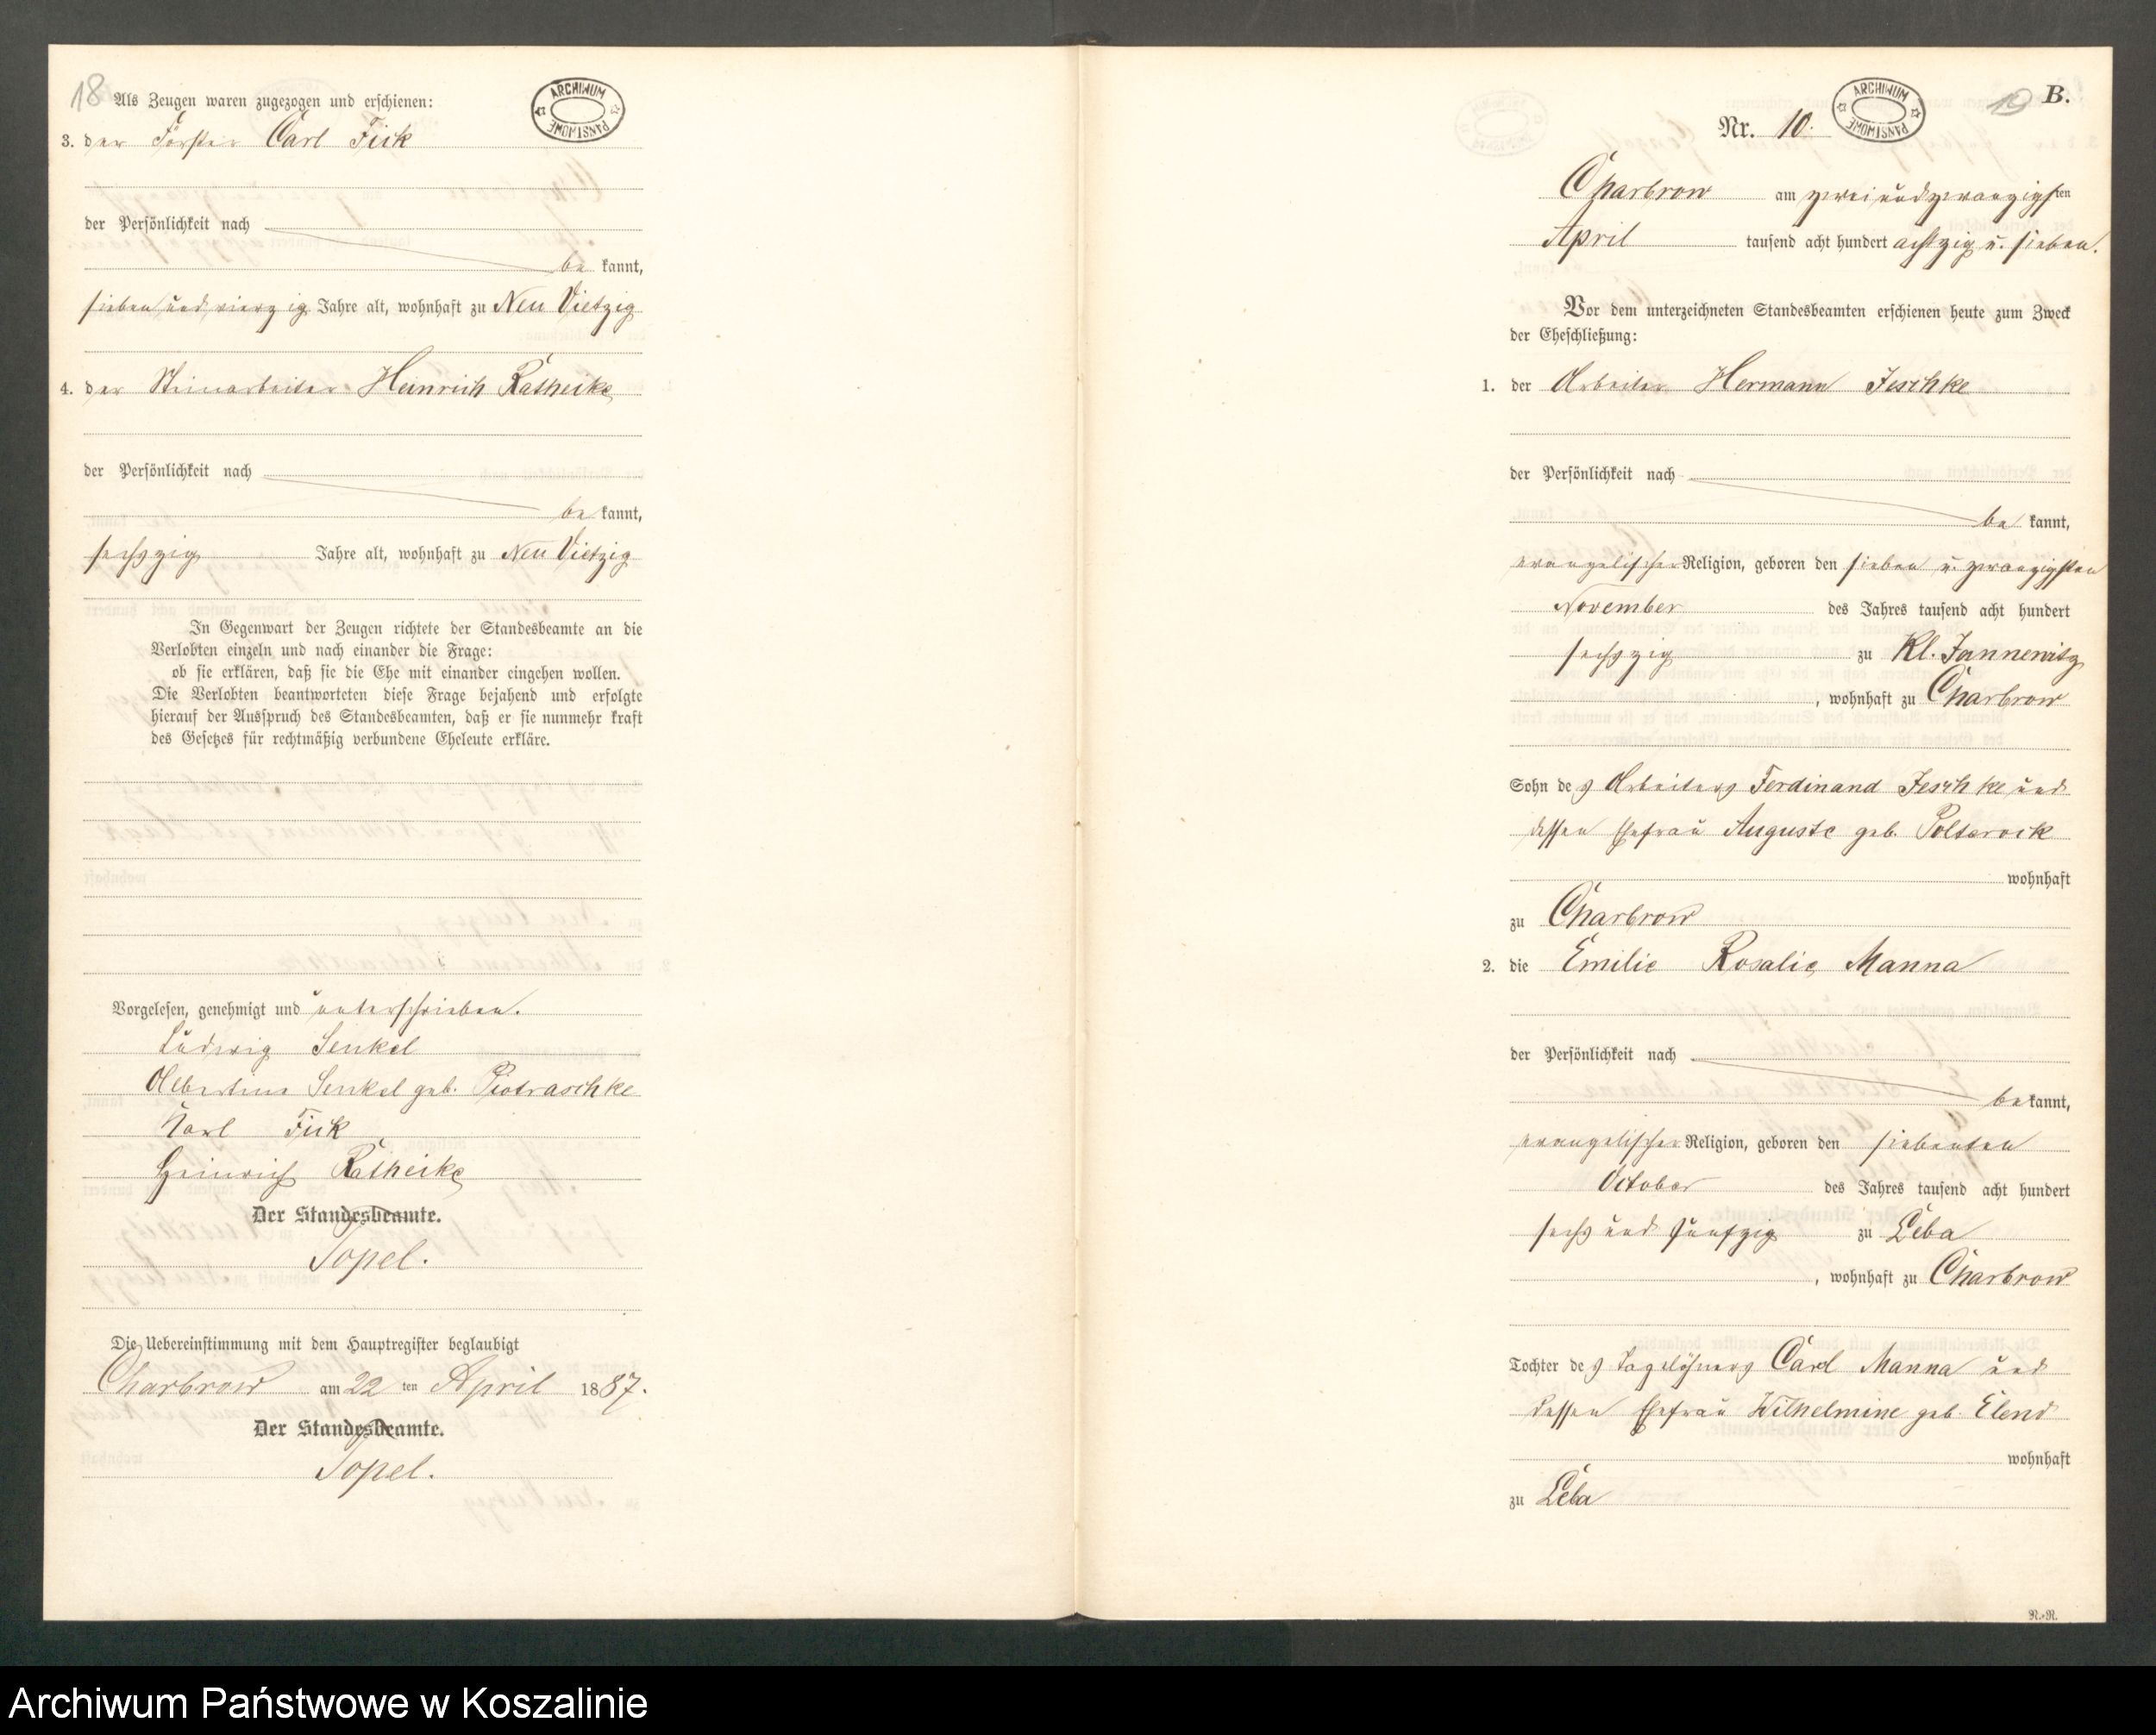 18
Als Zeugen waren zugezogen und erschienen:
ARCHIWUM PAŃSTWOWE
3. der Förster Carl Fick
der Persönlichkeit nach
be kannt,
sieben und vierzig Jahre alt, wohnhaft zu Neu Vietzig
4. der Steinarbeiter Heinrich Ratheike
der Persönlichkeit nach
be kannt,
sechszig Jahre alt, wohnhaft zu Neu Vietzig
In Gegenwart der Zeugen richtete der Standesbeamte an die
Verlobten einzeln und nach einander die Frage:
ob sie erklären, daß sie die Ehe mit einander eingehen wollen.
Die Verlobten beantworteten diese Frage bejahend und erfolgte
hierauf der Ausspruch des Standesbeamten, daß er sie nunmehr kraft
des Gesetzes für rechtmäßig verbundene Eheleute erkläre.
Vorgelesen, genehmigt und unterschrieben.
Ludwig Senkel
Albertine Senkel geb. Piotraschke
Karl Fick
Heinrich Ratheike
Der Standesbeamte.
Topel.
Die Uebereinstimmung mit dem Hauptregister beglaubigt
Charbrow am 22 ten April 1887.
Der Standesbeamte.
Topel.
19 B.
ARCHIWUM PAŃSTWOWE
Nr. 10.
Charbrow am zwei und zwanzigsten
April tausend acht hundert achtzig u. sieben.
Vor dem unterzeichneten Standesbeamten erschienen heute zum Zweck
der Eheschließung:
1. der Arbeiter Hermann Jeschke
der Persönlichkeit nach
be kannt,
evangelischer Religion, geboren den sieben u. zwanzigsten
November des Jahres tausend acht hundert
sechszig zu Kl. Jannewitz
, wohnhaft zu Charbrow
Sohn des Arbeiters Ferdinand Jeschke und
dessen Ehefrau Auguste geb. Polterock
wohnhaft
zu Charbrow
2. die Emilie Rosalie Manna
der Persönlichkeit nach
be kannt,
evangelischer Religion, geboren den siebenten
October des Jahres tausend acht hundert
sechs und fünfzig zu Leba
, wohnhaft zu Charbrow
Tochter des Tagelöhners Carl Manna und
dessen Ehefrau Wilhelmine geb. Elend
wohnhaft
zu Leba
N.-N.
Archiwum Państwowe w Koszalinie